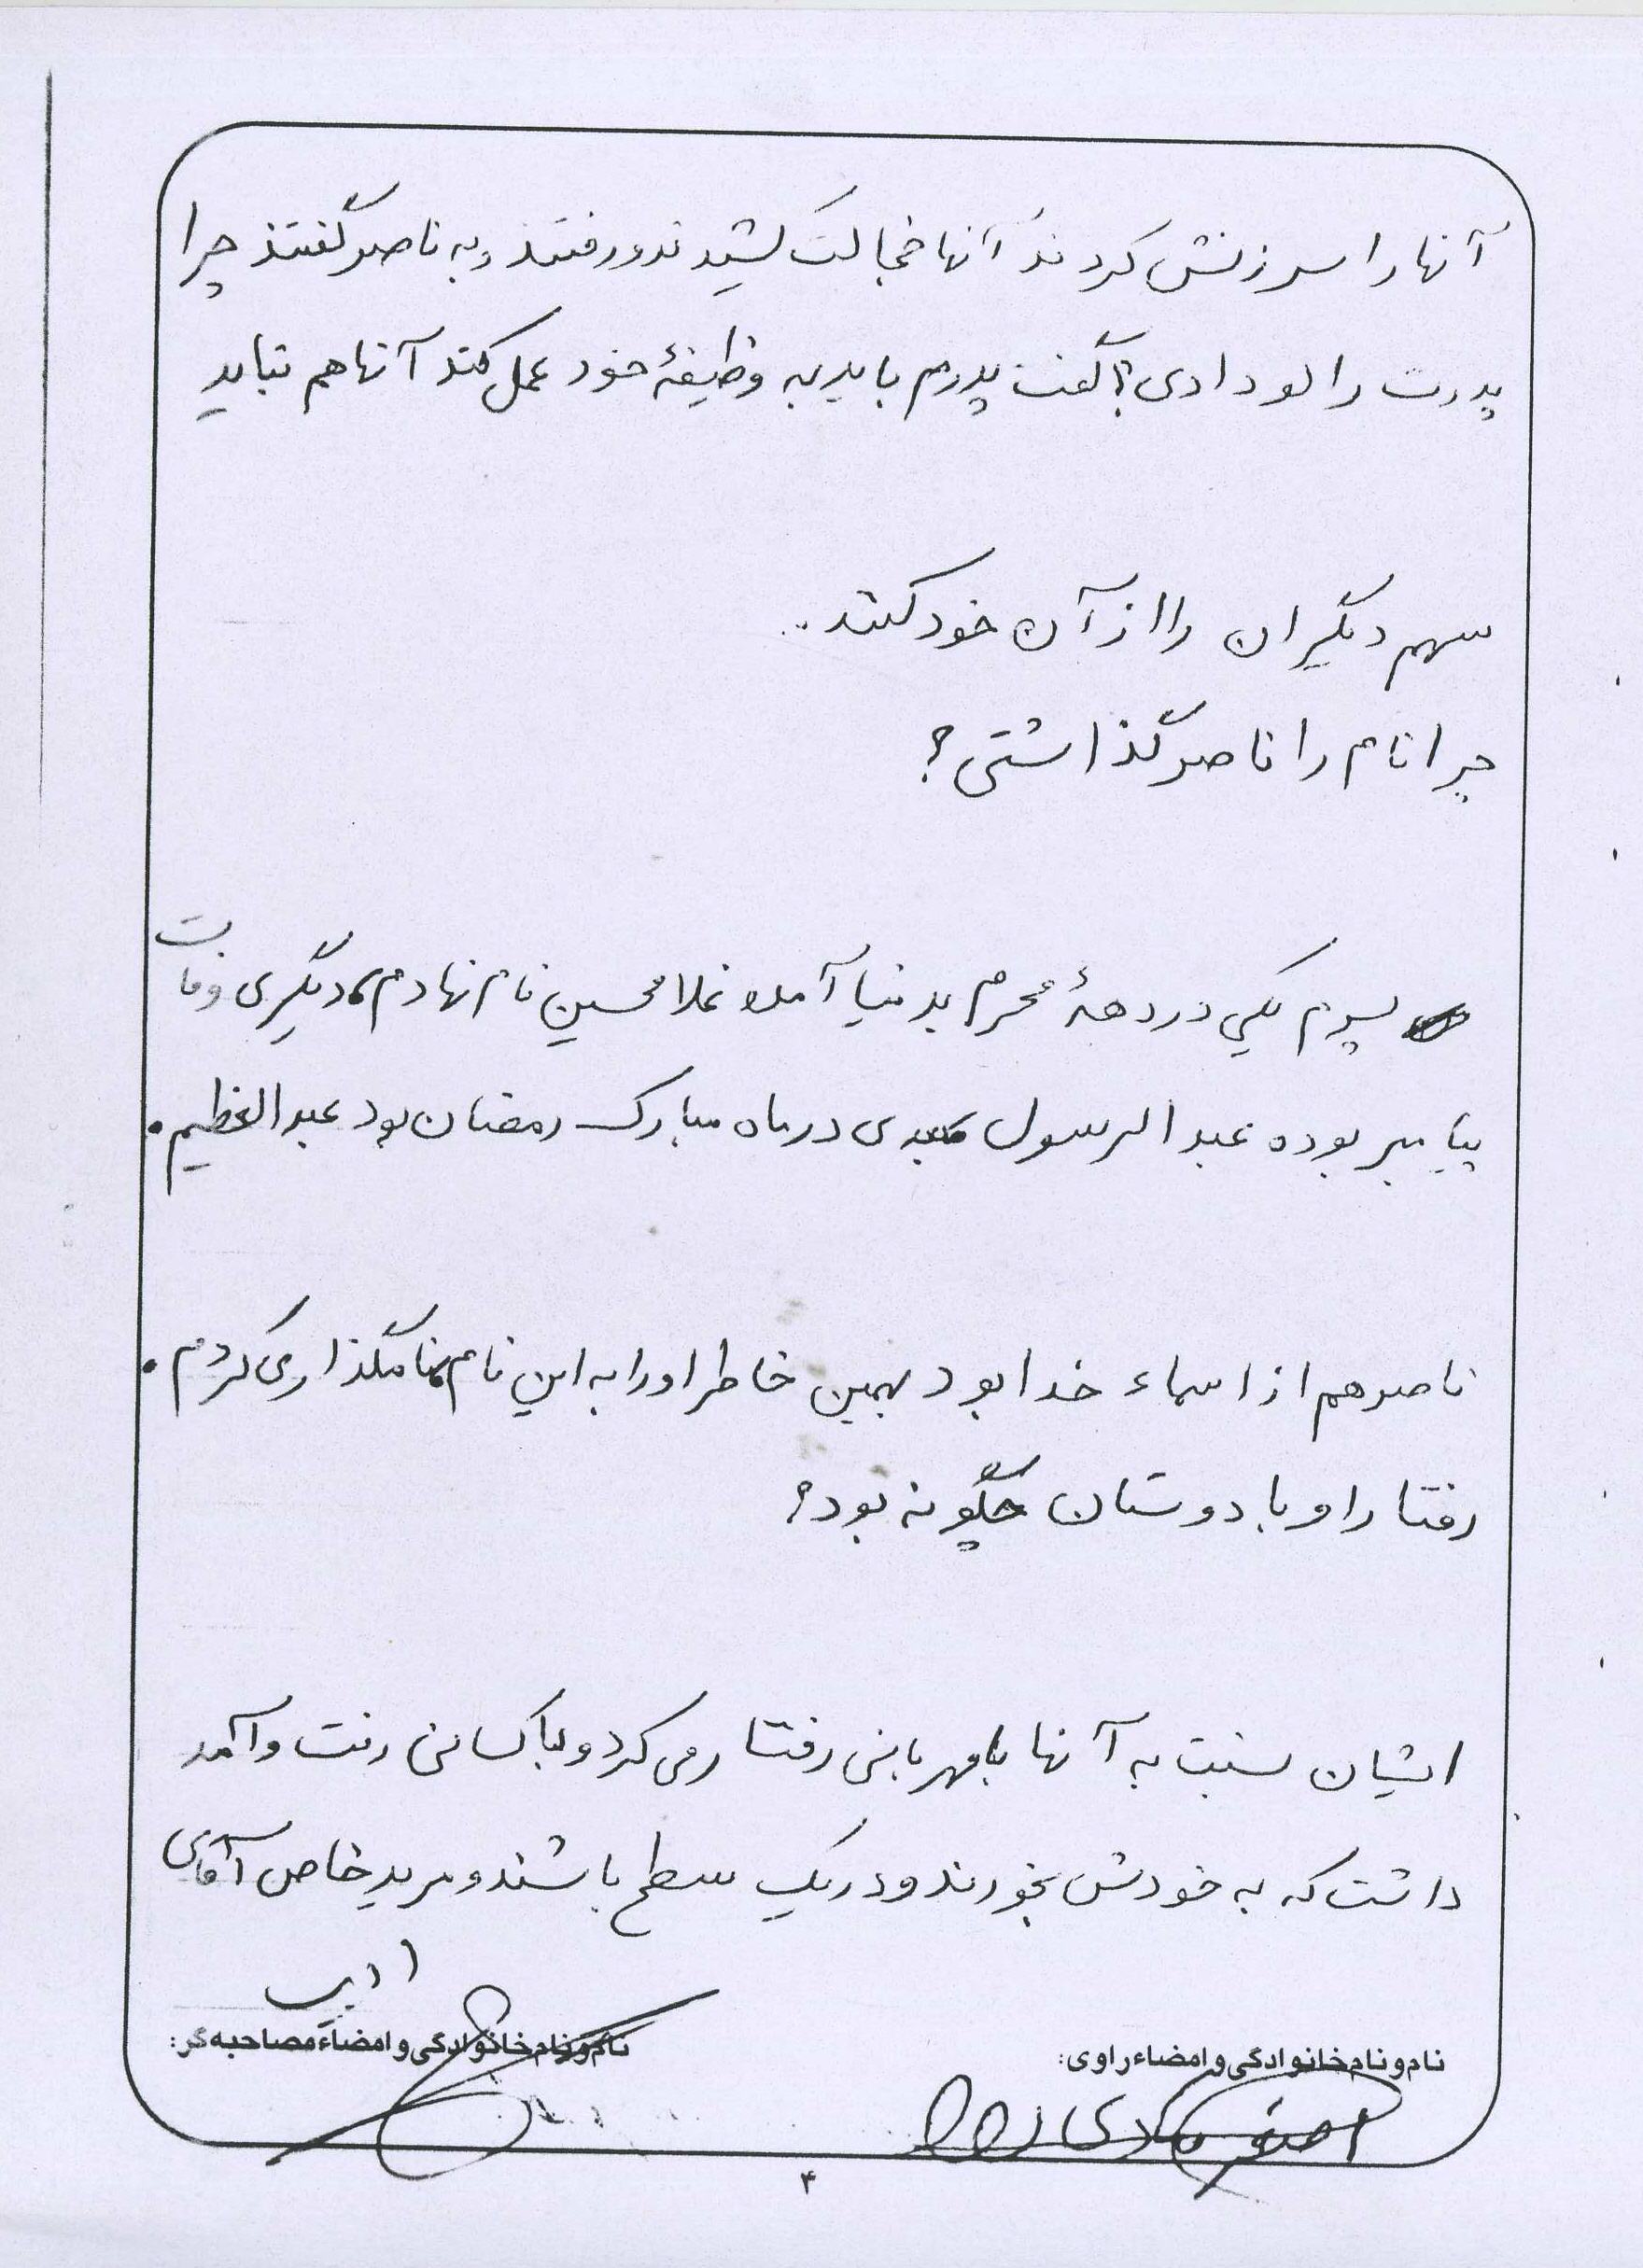 آنها را سرزنش کردند آنها خجالت کشیدند و رفتند و به ناصر گفتند چرا
پدرت را لو دادی؟ گفت پدرم باید به وظیفهٔ خود عمل کند آنها هم نباید
سهم دیگران را از آن خود کنند.
چرا نام را ناصر گذاشتی؟
پسرم یکی در دههٔ محرم بدنیا آمد غلامحسین نام نهادم دیگری وفات
پیامبر بوده عبدالرسول بعدی در ماه مبارک رمضان بود عبدالعظیم.
ناصر هم از اسماء خدا بود بهمین خاطر او را به این نام نامگذاری کردم.
رفتار او با دوستان چگونه بود؟
ایشان نسبت به آنها با مهربانی رفتار می کرد و با کسانی رفت و آمد
داشت که به خودش بخورند و در یک سطح باشند و مرید خاص آقای
ادیب
نام و نام خانوادگی و امضاء راوی:
نام و نام خانوادگی و امضاء مصاحبه گر:
۴